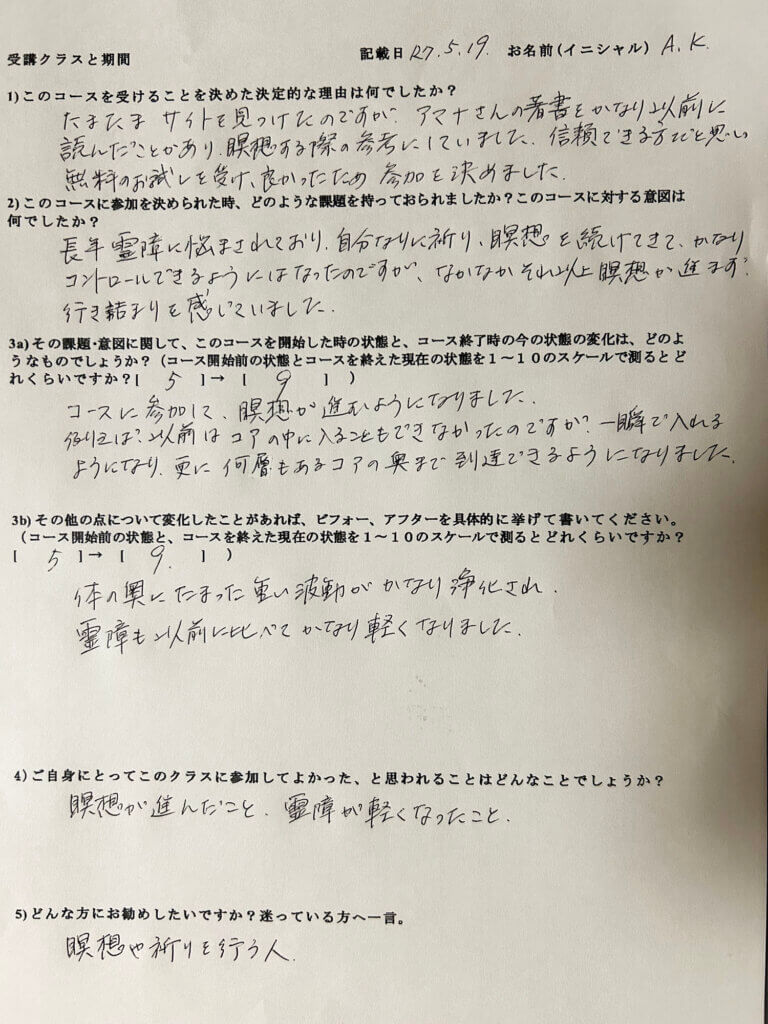 受講クラスと期間 記載日 R7.5.19. お名前(イニシャル) A.K.
1)このコースを受けることを決めた決定的な理由は何でしたか?
たまたま サイトを見つけたのですが、アマナさんの著書をかなり以前に
読んだことがあり、瞑想する際の参考にしていました。信頼できる方だと思い
無料のお試しを受け、良かったため 参加を決めました。
2)このコースに参加を決められた時、どのような課題を持っておられましたか?このコースに対する意図は
何でしたか?
長年霊障に悩まされており、自分なりに祈り、瞑想を続けてきて、かなり
コントロールできるようにはなったのですが、なかなかそれ以上瞑想が進まず、
行き詰まりを感じていました。
3a)その課題・意図に関して、このコースを開始した時の状態と、コース終了時の今の状態の変化は、どのよ
うなものでしょうか?(コース開始前の状態とコースを終えた現在の状態を1~10のスケールで測るとど
れくらいですか?[ 5 ]→ [ 9 ] )
コースに参加して、瞑想が進むようになりました。
例えば、以前はコアの中に入ることもできなかったのですが、一瞬で入れる
ようになり、更に何層もあるコアの奥まで到達できるようになりました。
3b)その他の点について変化したことがあれば、ビフォー、アフターを具体的に挙げて書いてください。
(コース開始前の状態と、コースを終えた現在の状態を1~10のスケールで測るとどれくらいですか?
[ 5 ]→ [ 9. ] )
体の奥にたまった重い波動がかなり浄化され、
霊障も以前に比べてかなり軽くなりました。
4)ご自身にとってこのクラスに参加してよかった、と思われることはどんなことでしょうか?
瞑想が進んだこと、霊障が軽くなったこと。
5)どんな方にお勧めしたいですか?迷っている方へ一言。
瞑想や祈りを行う人。